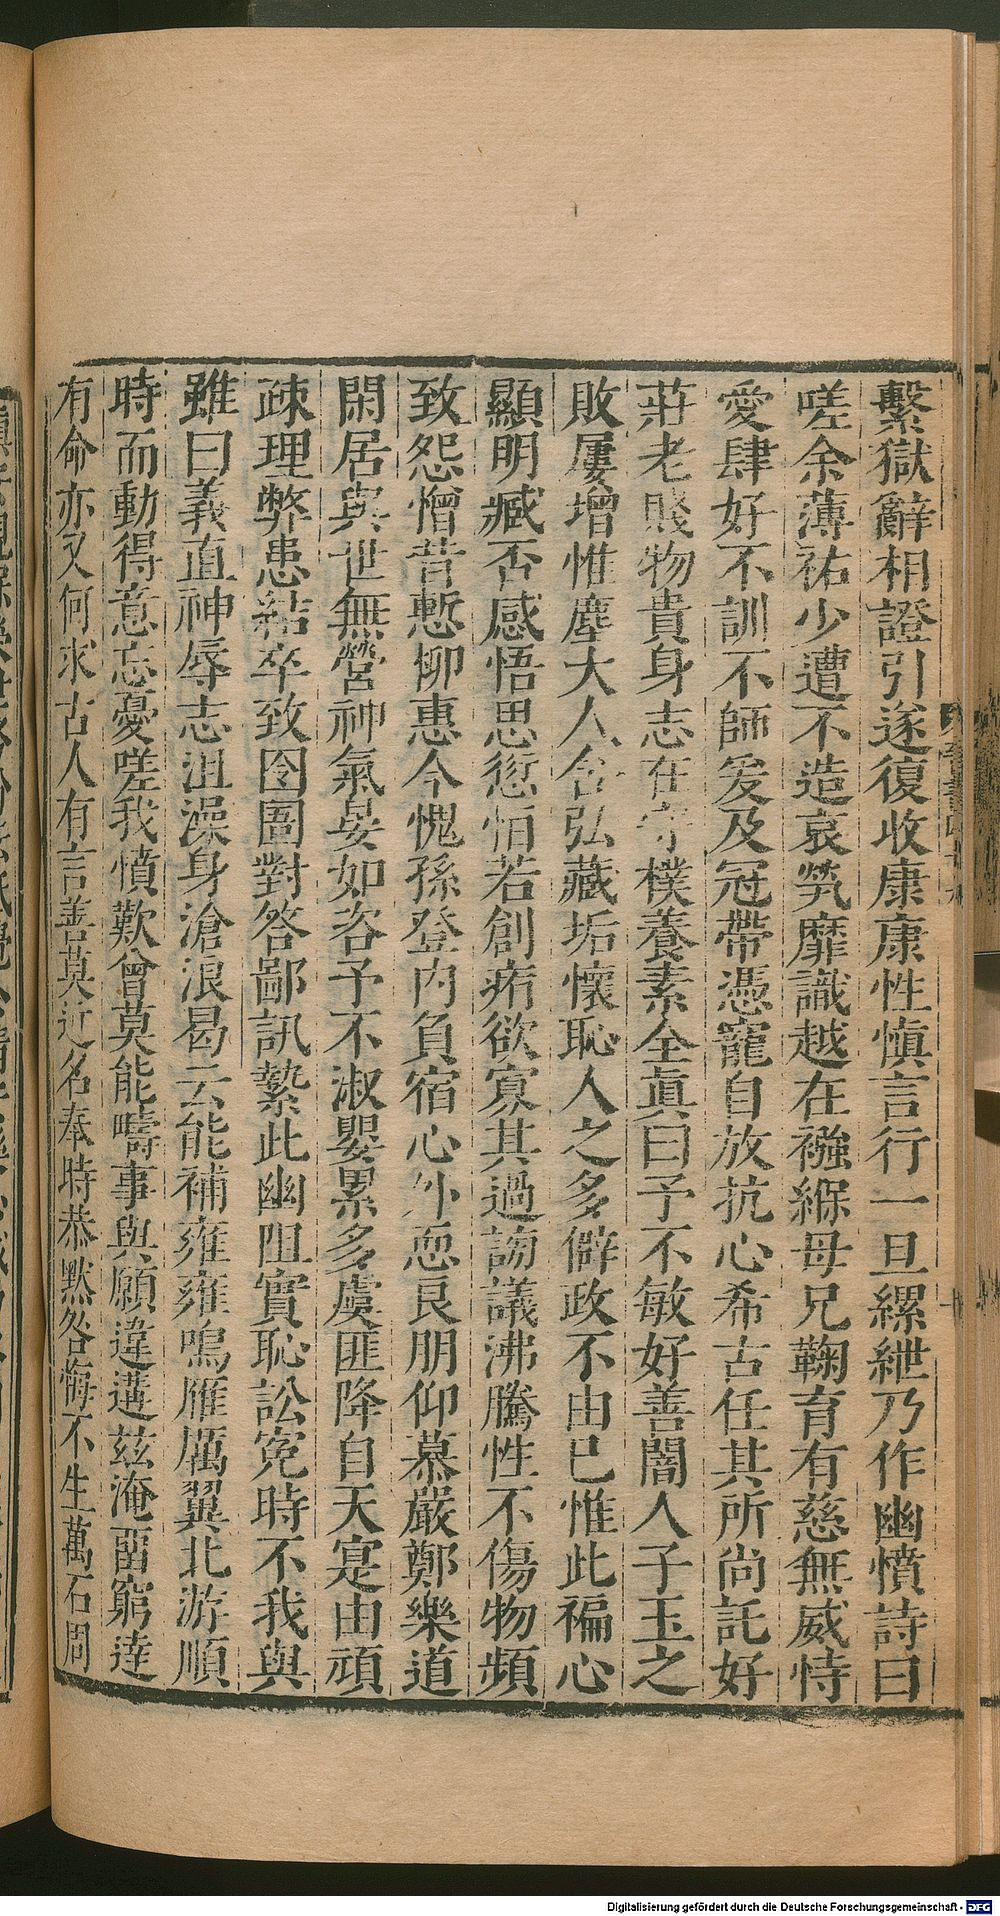 繫獄辭相證引遂復收康康性慎言行一旦縲紲乃作幽憤詩曰
嗟余薄祜少遭不造哀煢靡識越在襁緥母兄鞠育有慈無威恃
愛肆好不訓不師爰及冠帶憑寵自放抗心希古任其所尚託好
莊老賤物貴身志在守樸養素全眞曰予不敏好善闇人子玉之
敗屢增惟塵大人含弘藏垢懷恥人之多僻政不由己惟此褊心
顯明臧否感悟思愆怛若創痏欲寡其過謗議沸騰性不傷物頻
致怨憎昔慙柳惠今愧孫登內負宿心外恧良朋仰慕嚴鄭樂道
閑居與世無營神氣晏如咨予不淑嬰累多虞匪降自天寔由頑
疎理弊患結卒致囹圄對答鄙訊縶此幽阻實恥訟冤時不我與
雖曰義直神辱志沮澡身滄浪曷云能補雍雍鳴雁厲翼北游順
時而動得意忘憂嗟我憤歎曾莫能疇事與願違遘茲淹留窮達
有命亦又何求古人有言善莫近名奉時恭默咎悔不生萬石周
Digitalisierung gefördert durch die Deutsche Forschungsgemeinschaft - DFG